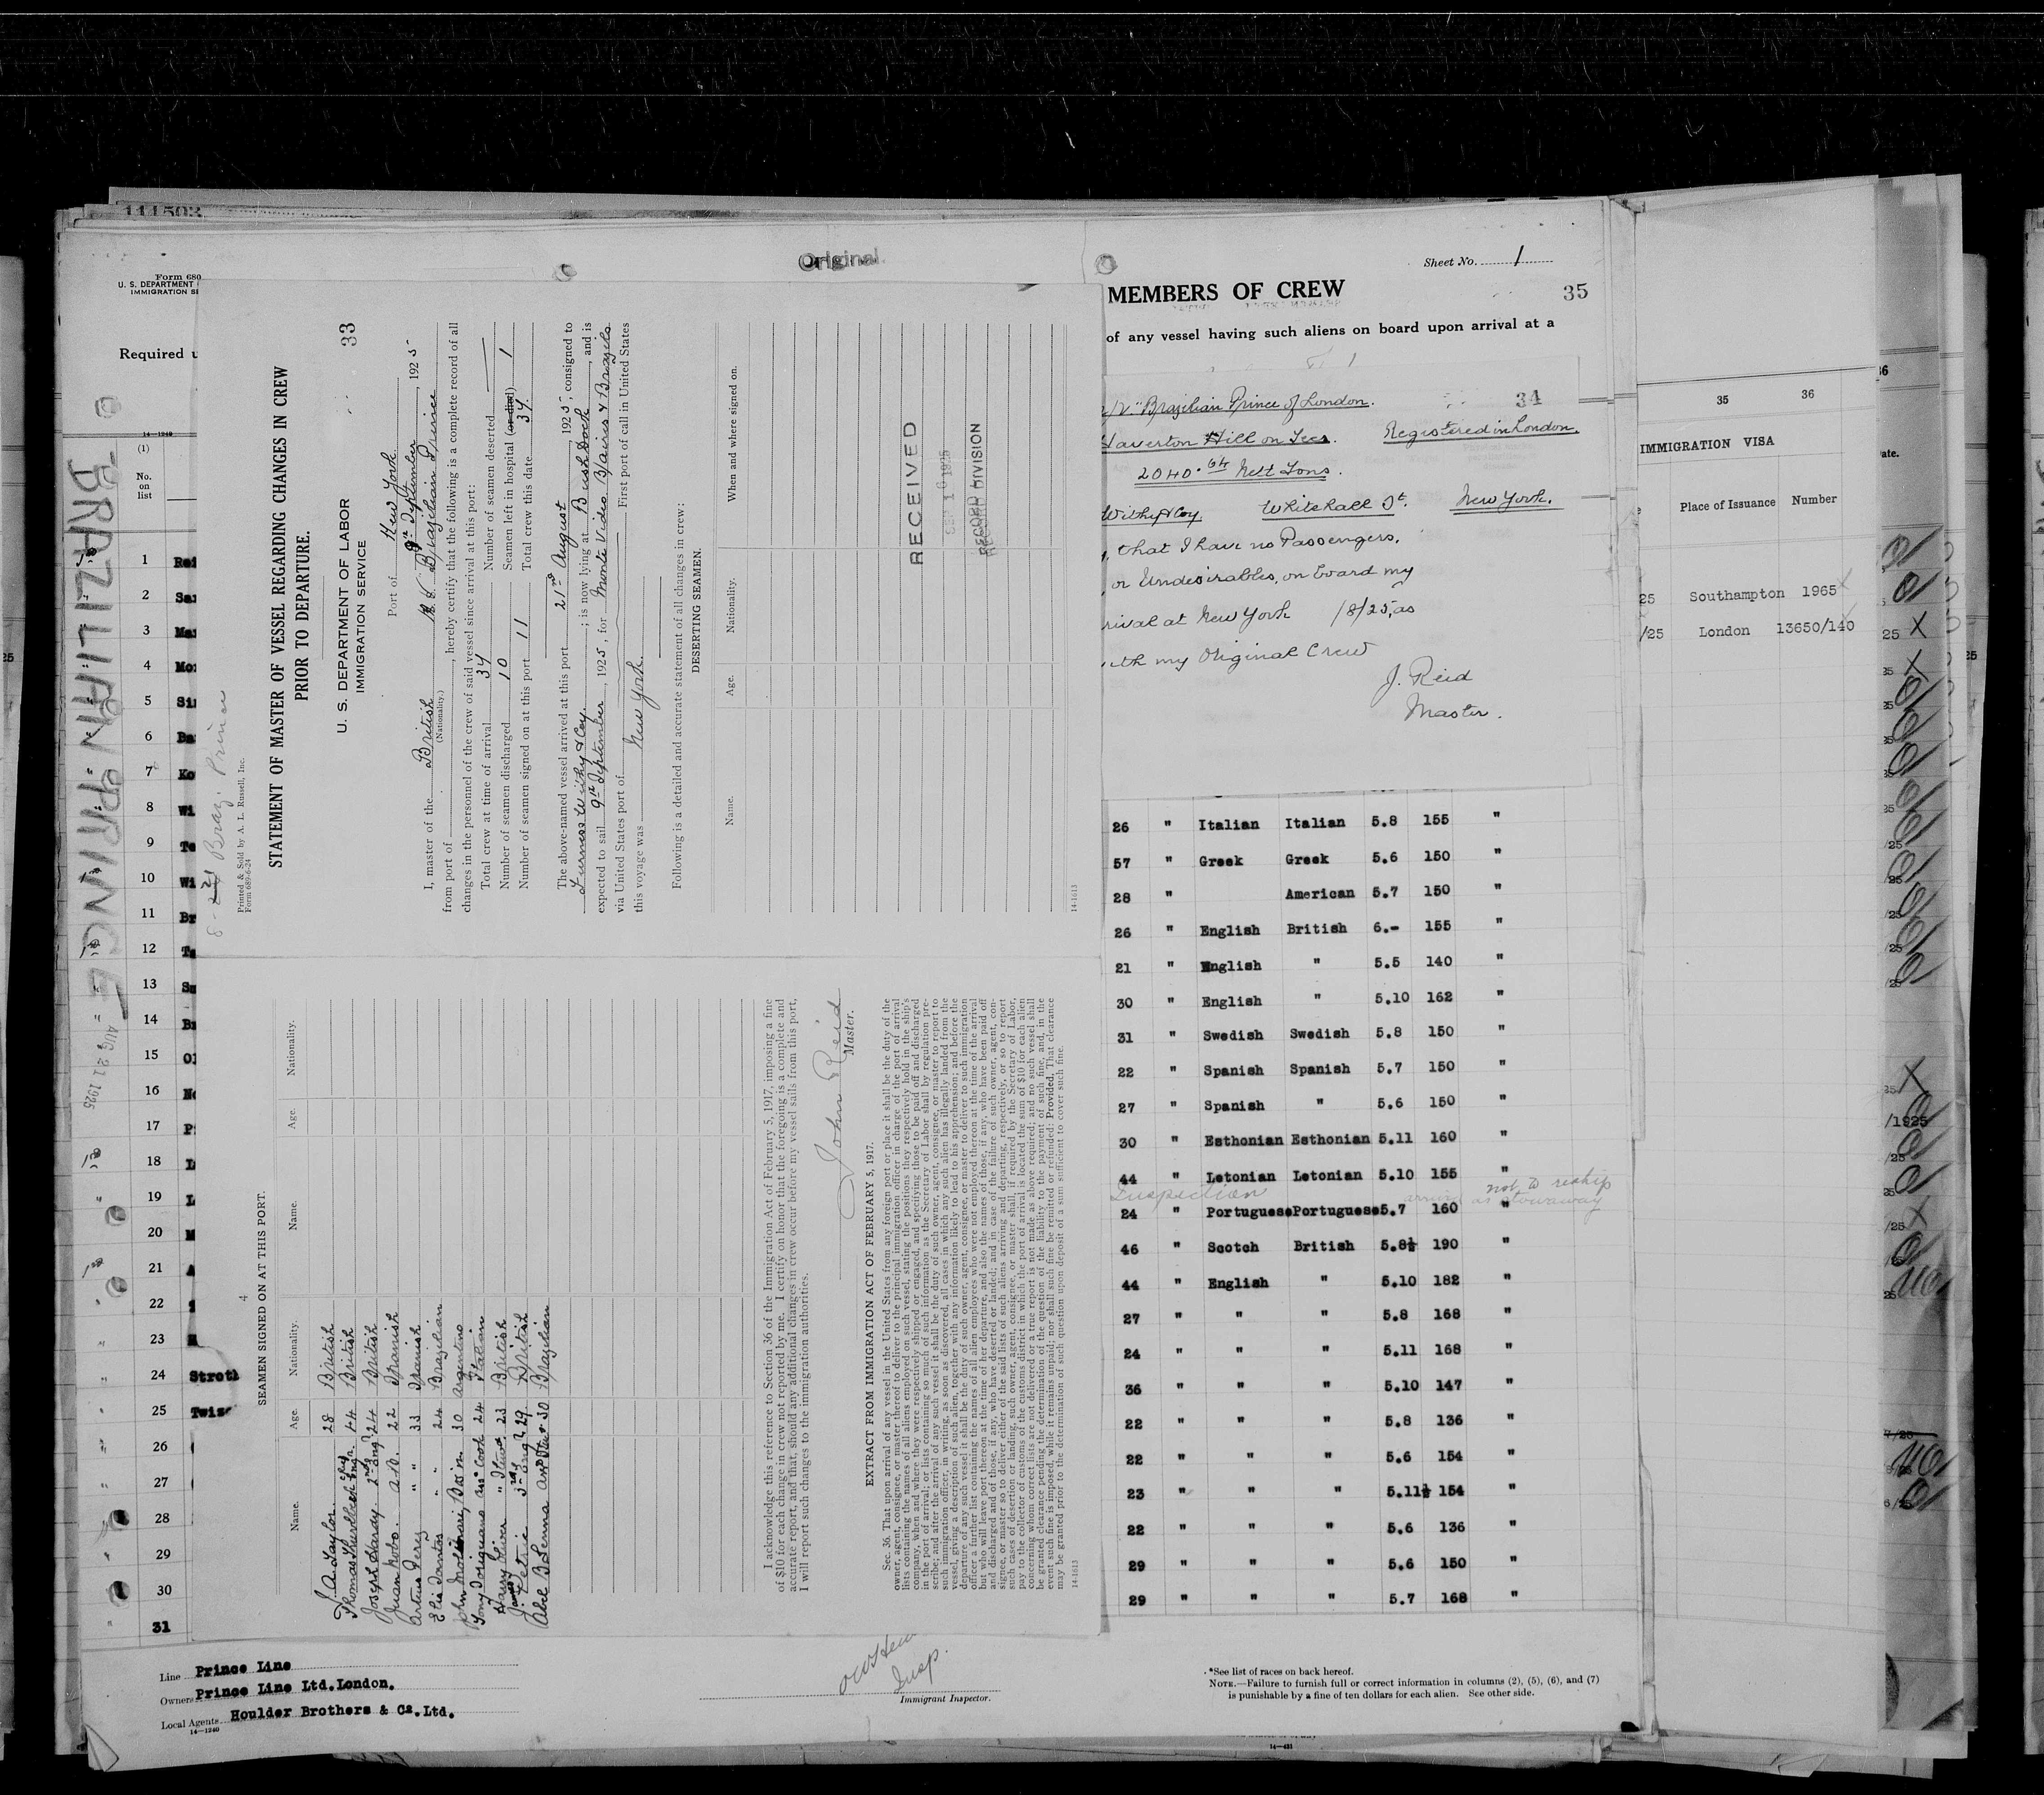 111503
Original
Form 680
U. S. DEPARTMENT
IMMIGRATION SE
Required u
14—1240
(1)
No.
on
list
BRAZILIAN PRINCE
AUG 21 1925
1 Rei
2 Sa
3 Ma
4 Mo
5 Si
6 Ba
7 Ko
8 Wi
9 Te
10 Wi
11 Br
12 Ta
13 Su
14 Br
15 Ol
16 No
17 P
18 L
19 L
20 M
21 A
22
23
24 Stroth
25 Twiz
26
27
28
29
30
31
Line Prince Line
Owners Prince Line Ltd.London.
Local Agents Houlder Brothers & Co.Ltd.
14—1240
8 - 221 Braz. Prince
Printed & Sold by A. L. Russell, Inc.
Form 689-6-24
33
STATEMENT OF MASTER OF VESSEL REGARDING CHANGES IN CREW
PRIOR TO DEPARTURE.
U. S. DEPARTMENT OF LABOR
IMMIGRATION SERVICE
Port of New York
9th September, 1925
I, master of the British M.V. Brazilian Prince
(Nationality.)
from port of , hereby certify that the following is a complete record of all
changes in the personnel of the crew of said vessel since arrival at this port:
Total crew at time of arrival 34 Number of seamen deserted —
Number of seamen discharged 10 Seamen left in hospital (or died) 1
Number of seamen signed on at this port 11 Total crew this date 34.
The above-named vessel arrived at this port 21st August, 1925, consigned to
Furness Withy & Coy. ; is now lying at Bush Dock, and is
expected to sail 9th September, 1925, for Monte Video B/Aires & Brazils
via United States port of First port of call in United States
this voyage was New York.
Following is a detailed and accurate statement of all changes in crew:
DESERTING SEAMEN.
Name. Age. Nationality. When and where signed on.
RECEIVED
SEP 10 1925
RECORD DIVISION
14-1613
4
SEAMEN SIGNED ON AT THIS PORT.
Name. Age. Nationality. Name. Age. Nationality.
J. A. Taylor. 28 British
Thomas 44 British
Joseph Hardy. 2nd Eng. 24 British
Juan Nobo. A.B. 22 Spanish
Arturo Ferry " " 33 Spanish
Elio Santos " " 24 Brazilian
John Molinari, Bos'n 30 Argentino
Tony Cook 24 Italian
Harry Oliver 23 British
James J. Petrie 3rd Eng. 29 British
Abel B Senna 30 Brazilian
I acknowledge this reference to Section 36 of the Immigration Act of February 5, 1917, imposing a fine
of $10 for each change in crew not reported by me. I certify on honor that the foregoing is a complete and
accurate report, and that, should any additional changes in crew occur before my vessel sails from this port,
I will report such changes to the immigration authorities.
John Reid
Master.
EXTRACT FROM IMMIGRATION ACT OF FEBRUARY 5, 1917.
Sec. 36. That upon arrival of any vessel in the United States from any foreign port or place it shall be the duty of the
owner, agent, consignee, or master thereof to deliver to the principal immigration officer in charge of the port of arrival
lists containing the names of all aliens employed on such vessel, stating the positions they respectively hold in the ship's
company, when and where they were respectively shipped or engaged, and specifying those to be paid off and discharged
in the port of arrival; or lists containing so much of such information as the Secretary of Labor shall by regulation pre-
scribe; and after the arrival of any such vessel it shall be the duty of such owner, agent, consignee, or master to report to
such immigration officer, in writing, as soon as discovered, all cases in which any such alien has illegally landed from the
vessel, giving a description of such alien, together with any information likely to lead to his apprehension; and before the
departure of any such vessel it shall be the duty of such owner, agent, consignee, or master to deliver to such immigration
officer a further list containing the names of all alien employees who were not employed thereon at the time of the arrival
but who will leave port thereon at the time of her departure, and also the names of those, if any, who have been paid off
and discharged and of those, if any, who have deserted or landed; and in case of the failure of such owner, agent, con-
signee, or master so to deliver either of the said lists of such aliens arriving and departing, respectively, or so to report
such cases of desertion or landing, such owner, agent, consignee, or master shall, if required by the Secretary of Labor,
pay to the collector of customs of the customs district in which the port of arrival is located the sum of $10 for each alien
concerning whom correct lists are not delivered or a true report is not made as above required; and no such vessel shall
be granted clearance pending the determination of the question of the liability to the payment of such fine, and, in the
event such fine is imposed, while it remains unpaid; nor shall such fine be remitted or refunded: Provided, That clearance
may be granted prior to the determination of such question upon deposit of a sum sufficient to cover such fine.
14-1613
Insp.
Immigrant Inspector.
Sheet No. 1
MEMBERS OF CREW 35
of any vessel having such aliens on board upon arrival at a
34
"Brazilian Prince of London.
Haverton Hill on Tees. Registered in London.
2040.64 Nett Tons.
Withy & Coy. Whitehall St. New York.
, that I have no Passengers,
, or Undesirables, on board my
rival at New York /8/25, as
ith my Original Crew
J. Reid
Master.
26 " Italian Italian 5.8 155 "
57 " Greek Greek 5.6 150 "
28 " American 5.7 150 "
26 " English British 6.- 155 "
21 " English " 5.5 140 "
30 " English " 5.10 162 "
31 " Swedish Swedish 5.8 150 "
22 " Spanish Spanish 5.7 150 "
27 " Spanish " 5.6 150 "
30 " Esthonian Esthonian 5.11 160 "
44 " Letonian Letonian 5.10 155 "
Inspection arriving not to reship as stowaway
24 " Portuguese Portuguese 5.7 160 "
46 " Scotch British 5.8½ 190 "
44 " English " 5.10 182 "
27 " " " 5.8 168 "
24 " " " 5.11 168 "
36 " " " 5.10 147 "
22 " " " 5.8 136 "
22 " " " 5.6 154 "
23 " " " 5.11½ 154 "
22 " " " 5.6 136 "
29 " " " 5.6 150 "
29 " " " 5.7 168 "
*See list of races on back hereof.
NOTE.—Failure to furnish full or correct information in columns (2), (5), (6), and (7)
is punishable by a fine of ten dollars for each alien. See other side.
35 36
IMMIGRATION VISA
Place of Issuance Number
25 Southampton 1965
/25 London 13650/140